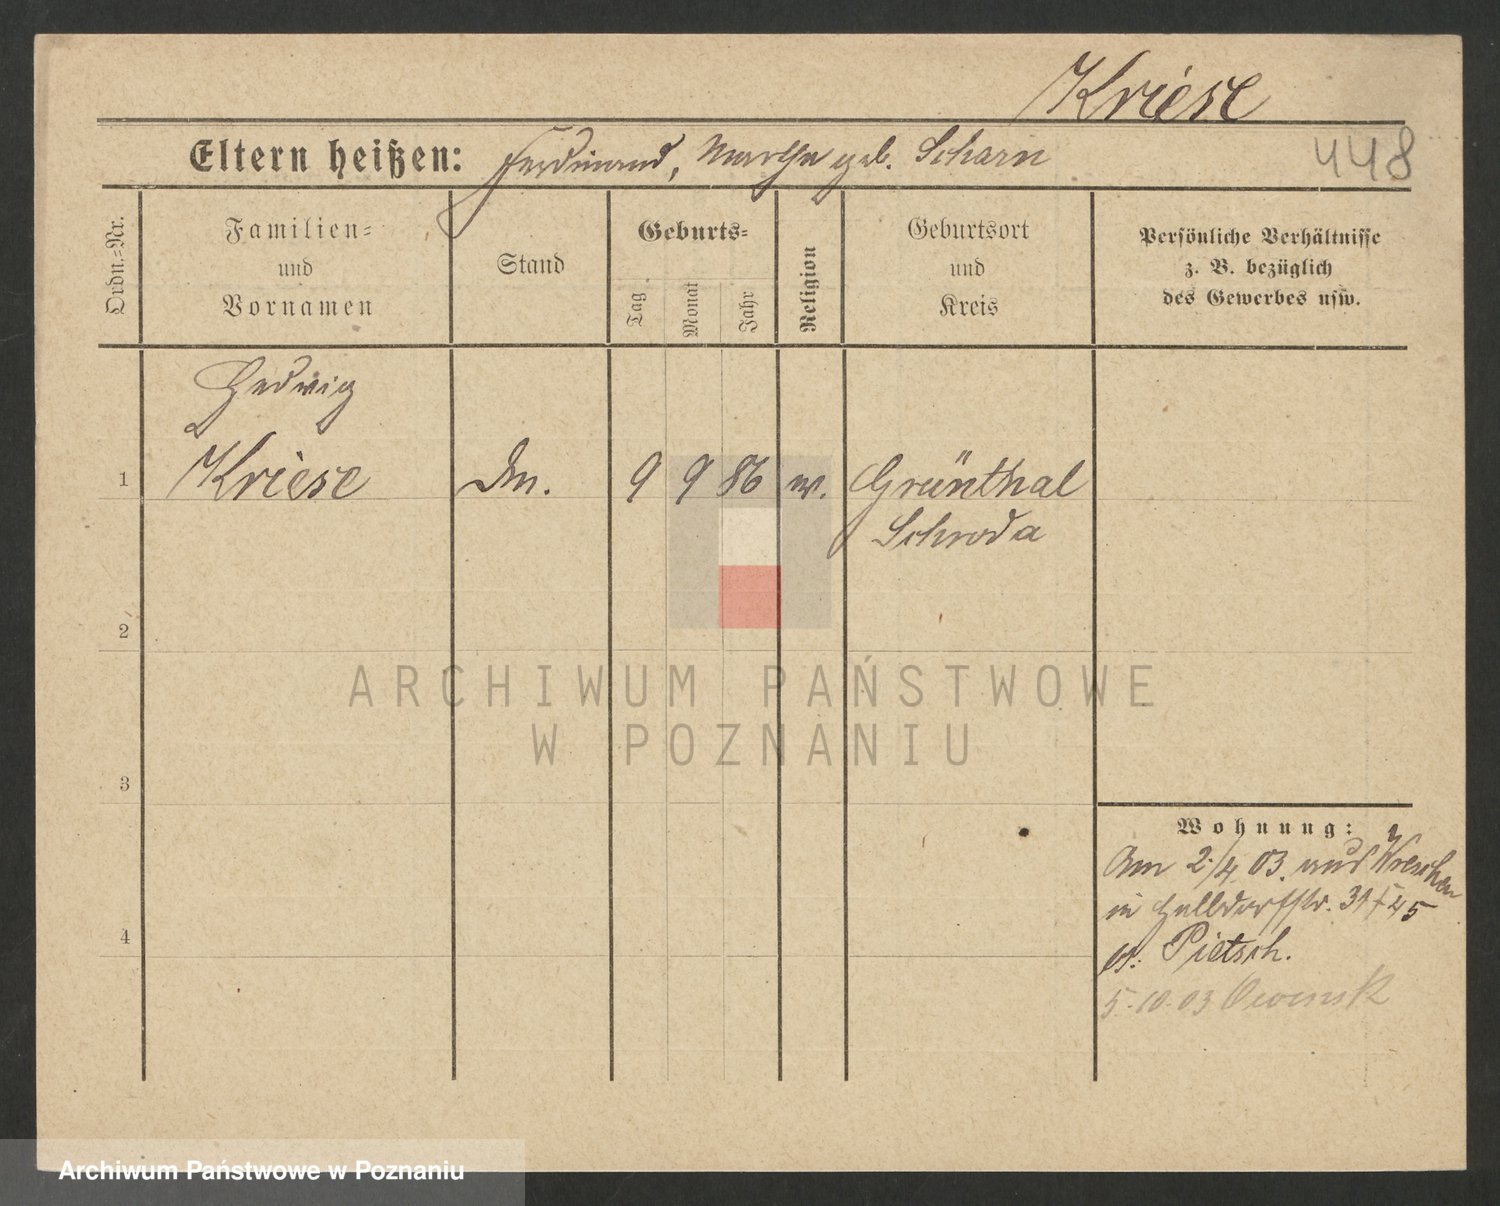 Kriese
Eltern heißen: Ferdinand, Martha geb. Scharn
448
Ordn.-Nr.
Familien-
und
Vornamen
Stand
Geburts-
Tag
Monat
Jahr
Religion
Geburtsort
und
Kreis
Persönliche Verhältnisse
z. B. bezüglich
des Gewerbes usw.
Hedwig
1 Kriese 9 9 86 Grünthal
Schroda
2
3
4
Wohnung:
Am 2/4 03. aus Wreschen
in Halldorfstr. 31
Pietsch.
5.10.03 Owinsk
ARCHIWUM PAŃSTWOWE
W POZNANIU
Archiwum Państwowe w Poznaniu